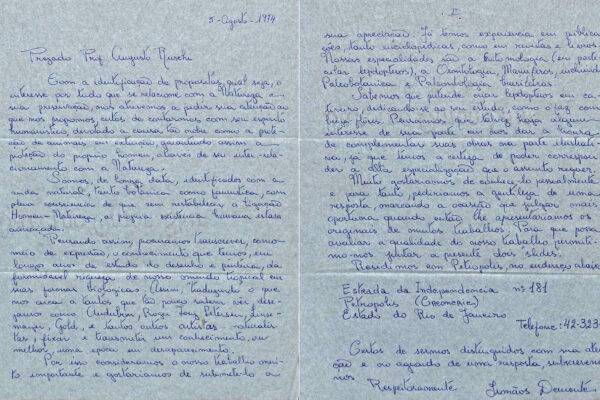 5-Agosto-1974
Prezado Prof. Augusto Ruschi
Com a identificação de propósitos, qual seja, o
interesse por tudo que se relacione com a Natureza e
sua preservação, nos atrevemos a pedir sua atenção ao
que nos propomos, certos de contarmos com seu espírito
humanístico, devotado a causa tão nobre como a prote-
ção de animais em extinção, garantindo assim a
proteção do próprio homem, através de seu inter-rela-
cionamento com a Natureza.
Somos, de longa data, identificados com a
vida natural, tanto botânica como faunística, com
plena consciência de que sem restabelecer a ligação
Homem-Natureza, a própria existência humana estará
ameaçada.
Pensando assim, procuramos transcrever, como
meio de expressão, o conhecimento que temos, em
longos anos de estudo no desenho e pintura, da
formidável riqueza de nosso mundo tropical em
suas formas biológicas. Assim, traduzindo o que
nos arca a tantos que tão pouco sabem ver, dese-
jamos como Audubon, Roger Tory Peterson,
Gold, e tantos outros artistas naturalis-
tas, fixar e transmitir um conhecimento, ou
melhor, uma época em desaparecimento.
Por isso consideramos o nosso trabalho mui-
to importante e gostaríamos de submetê-lo a
II
sua apreciação. Já temos experiência em publica-
ções, tanto enciclopédicas, como em revistas e livros.
Nossas especialidades são a Entomologia (em parti-
cular lepidópteros), a Ornitologia, Mamíferos, incluindo
Paleobotânica e Paleontologia brasileiras.
Sabemos que pretende criar lepidópteros em ca-
tiveiro, dedicando-se ao seu estudo, como o faz com
beija-flores. Pensamos que talvez haja algum
interesse de sua parte em nos dar a honra
de complementar suas obras na parte ilustrati-
va, já que temos a certeza de poder correspon-
der à alta especialização que o assunto requer.
Muito gostaríamos de conhecê-lo pessoalmente
e para tanto, pediríamos a gentileza de uma
resposta, marcando a ocasião que julgar mais
oportuna quando então lhe apresentaríamos os
originais de muitos trabalhos. Para que possa
avaliar a qualidade do nosso trabalho permiti-
mo-nos juntar à presente dois slides.
Residimos em Petrópolis, no endereço abaixo
Estrada da Independência nº 181
Petrópolis
Estado do Rio de Janeiro
Telefone: 42-323
Certos de sermos distinguidos com sua aten-
ção e no aguardo de uma resposta, subscrevemo-
nos
Respeitosamente Irmãos Demonte